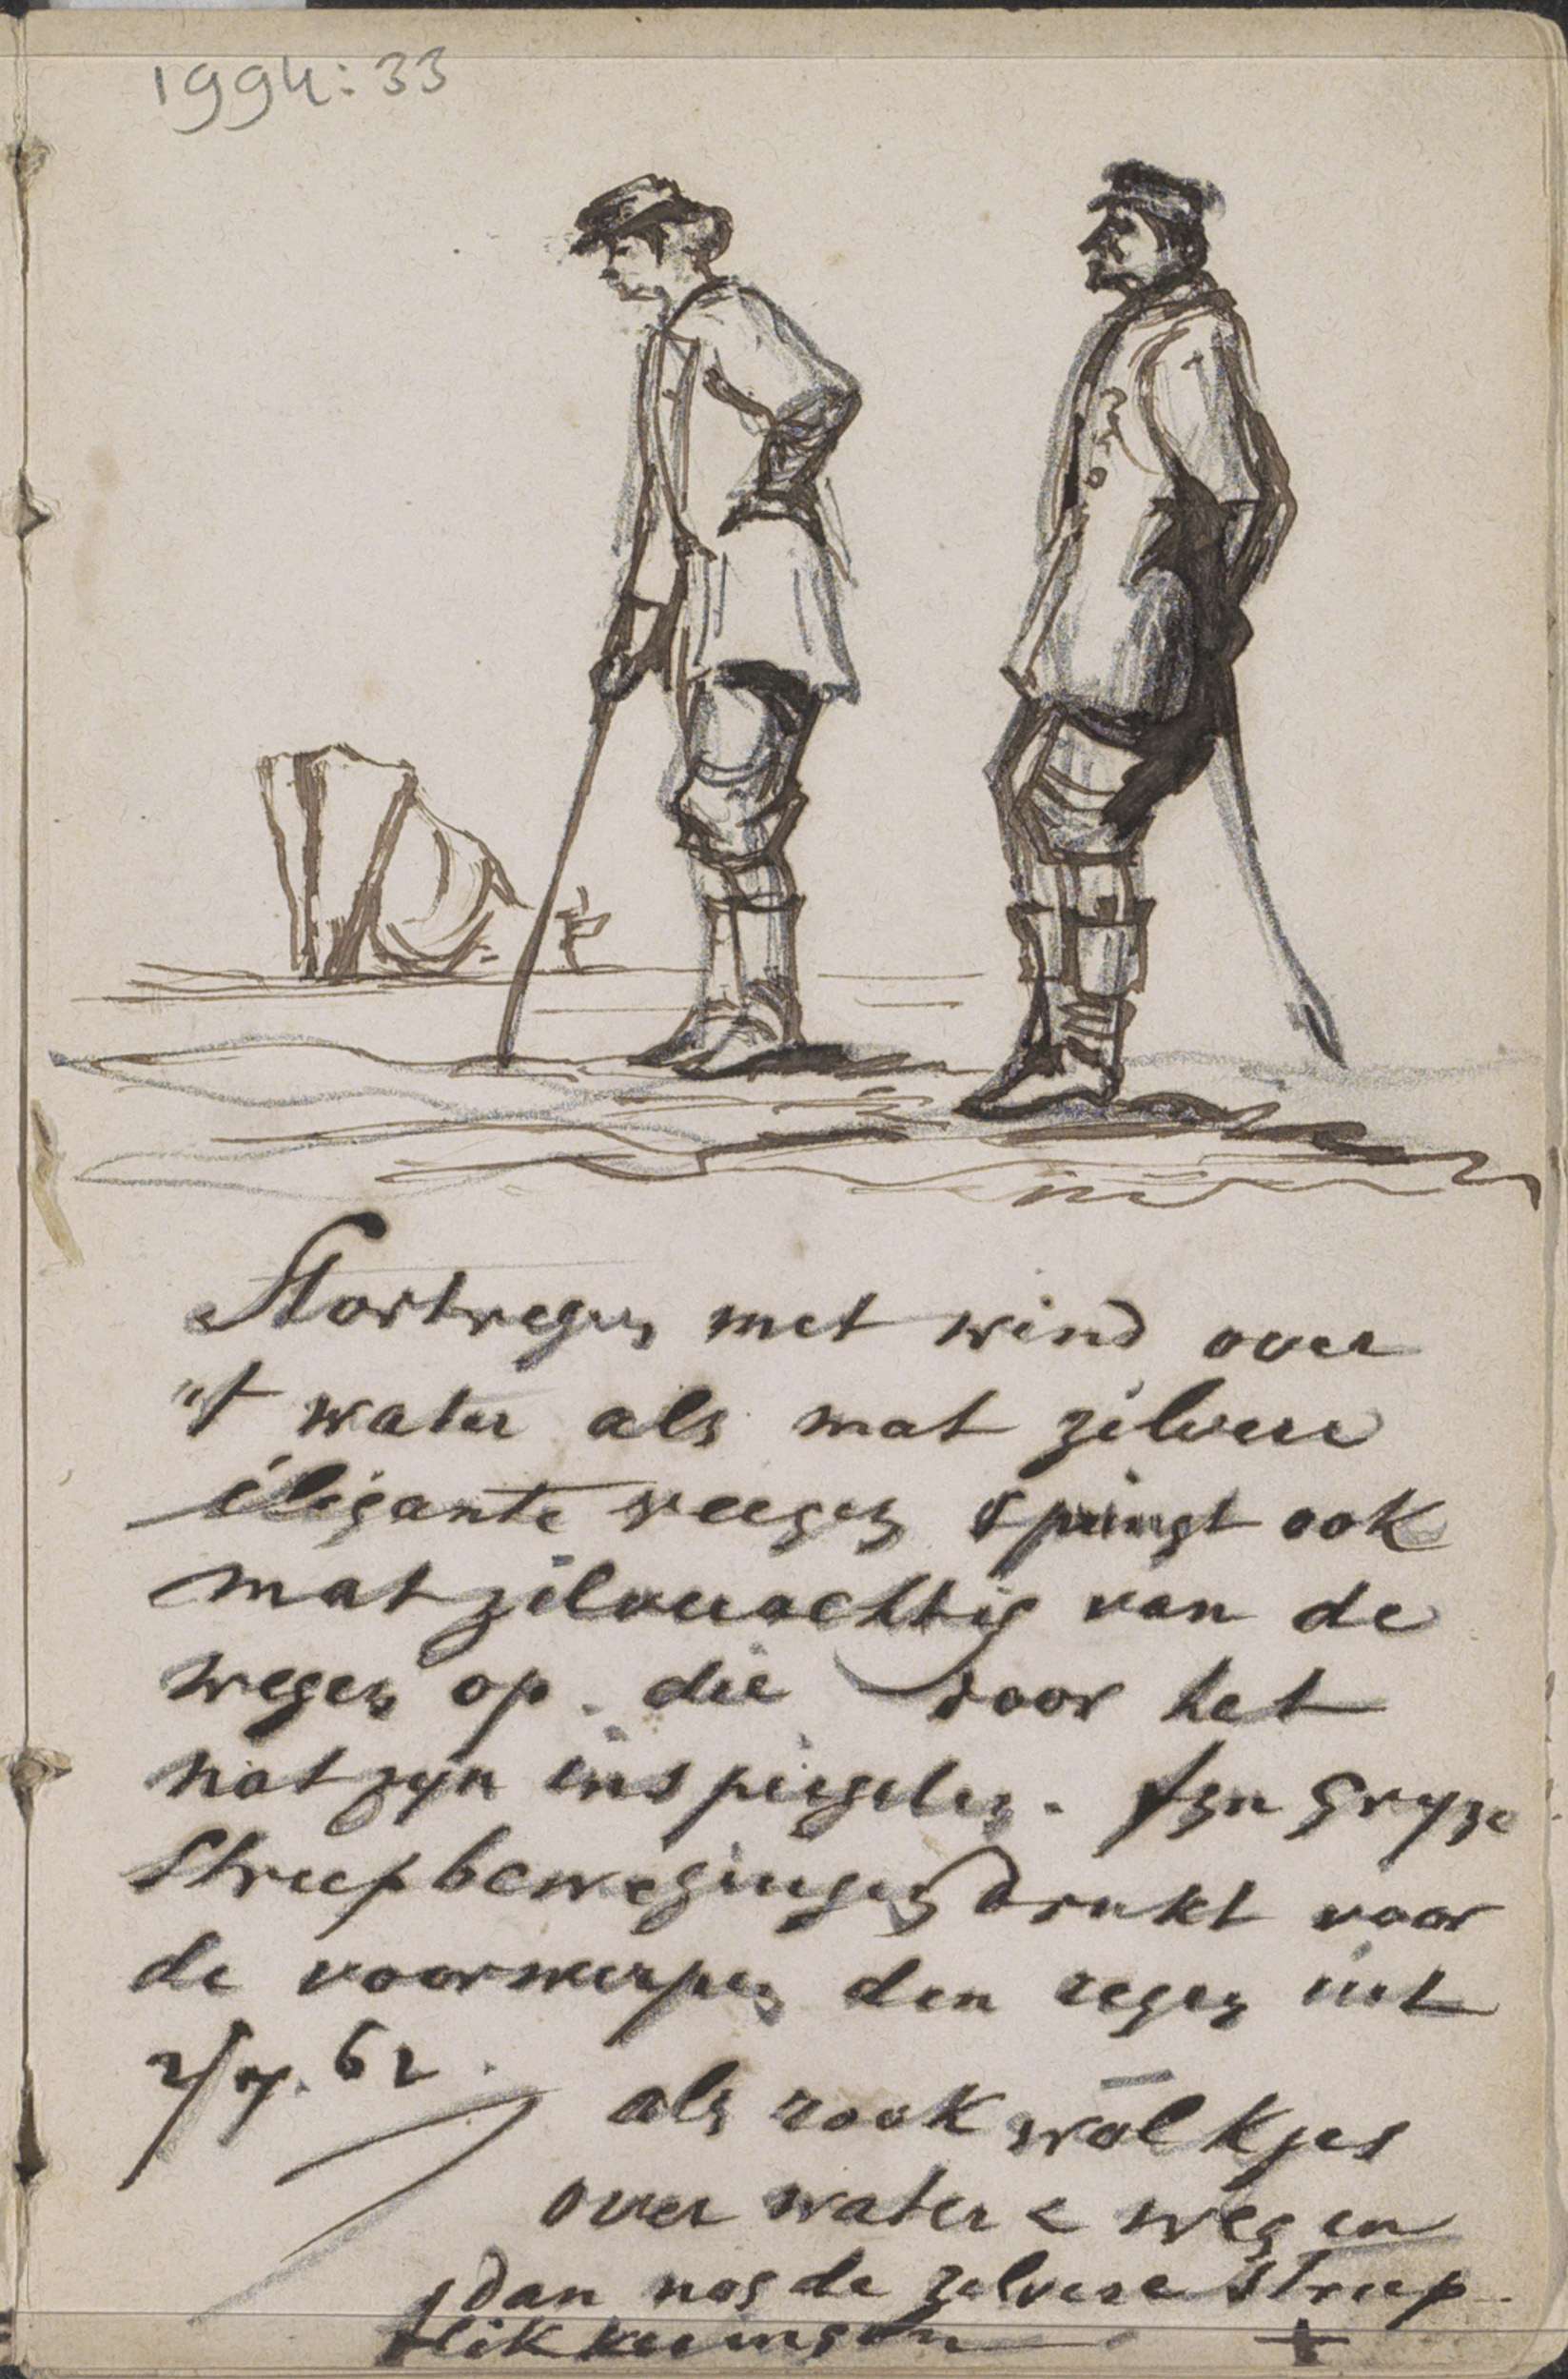 1994:33
Stortregen met wind over
't water als mat zilvere
élégante veegen springt ook
mat zilverachtig van de
wegen op. die door het
nat zyn inspiegelen. fyn gryze
streepbewegingen drukt voor
de voorwerpen den regen uit
als rook wolkjes
over water & wegen
dan nog de zelvere streep
flikkeringen +